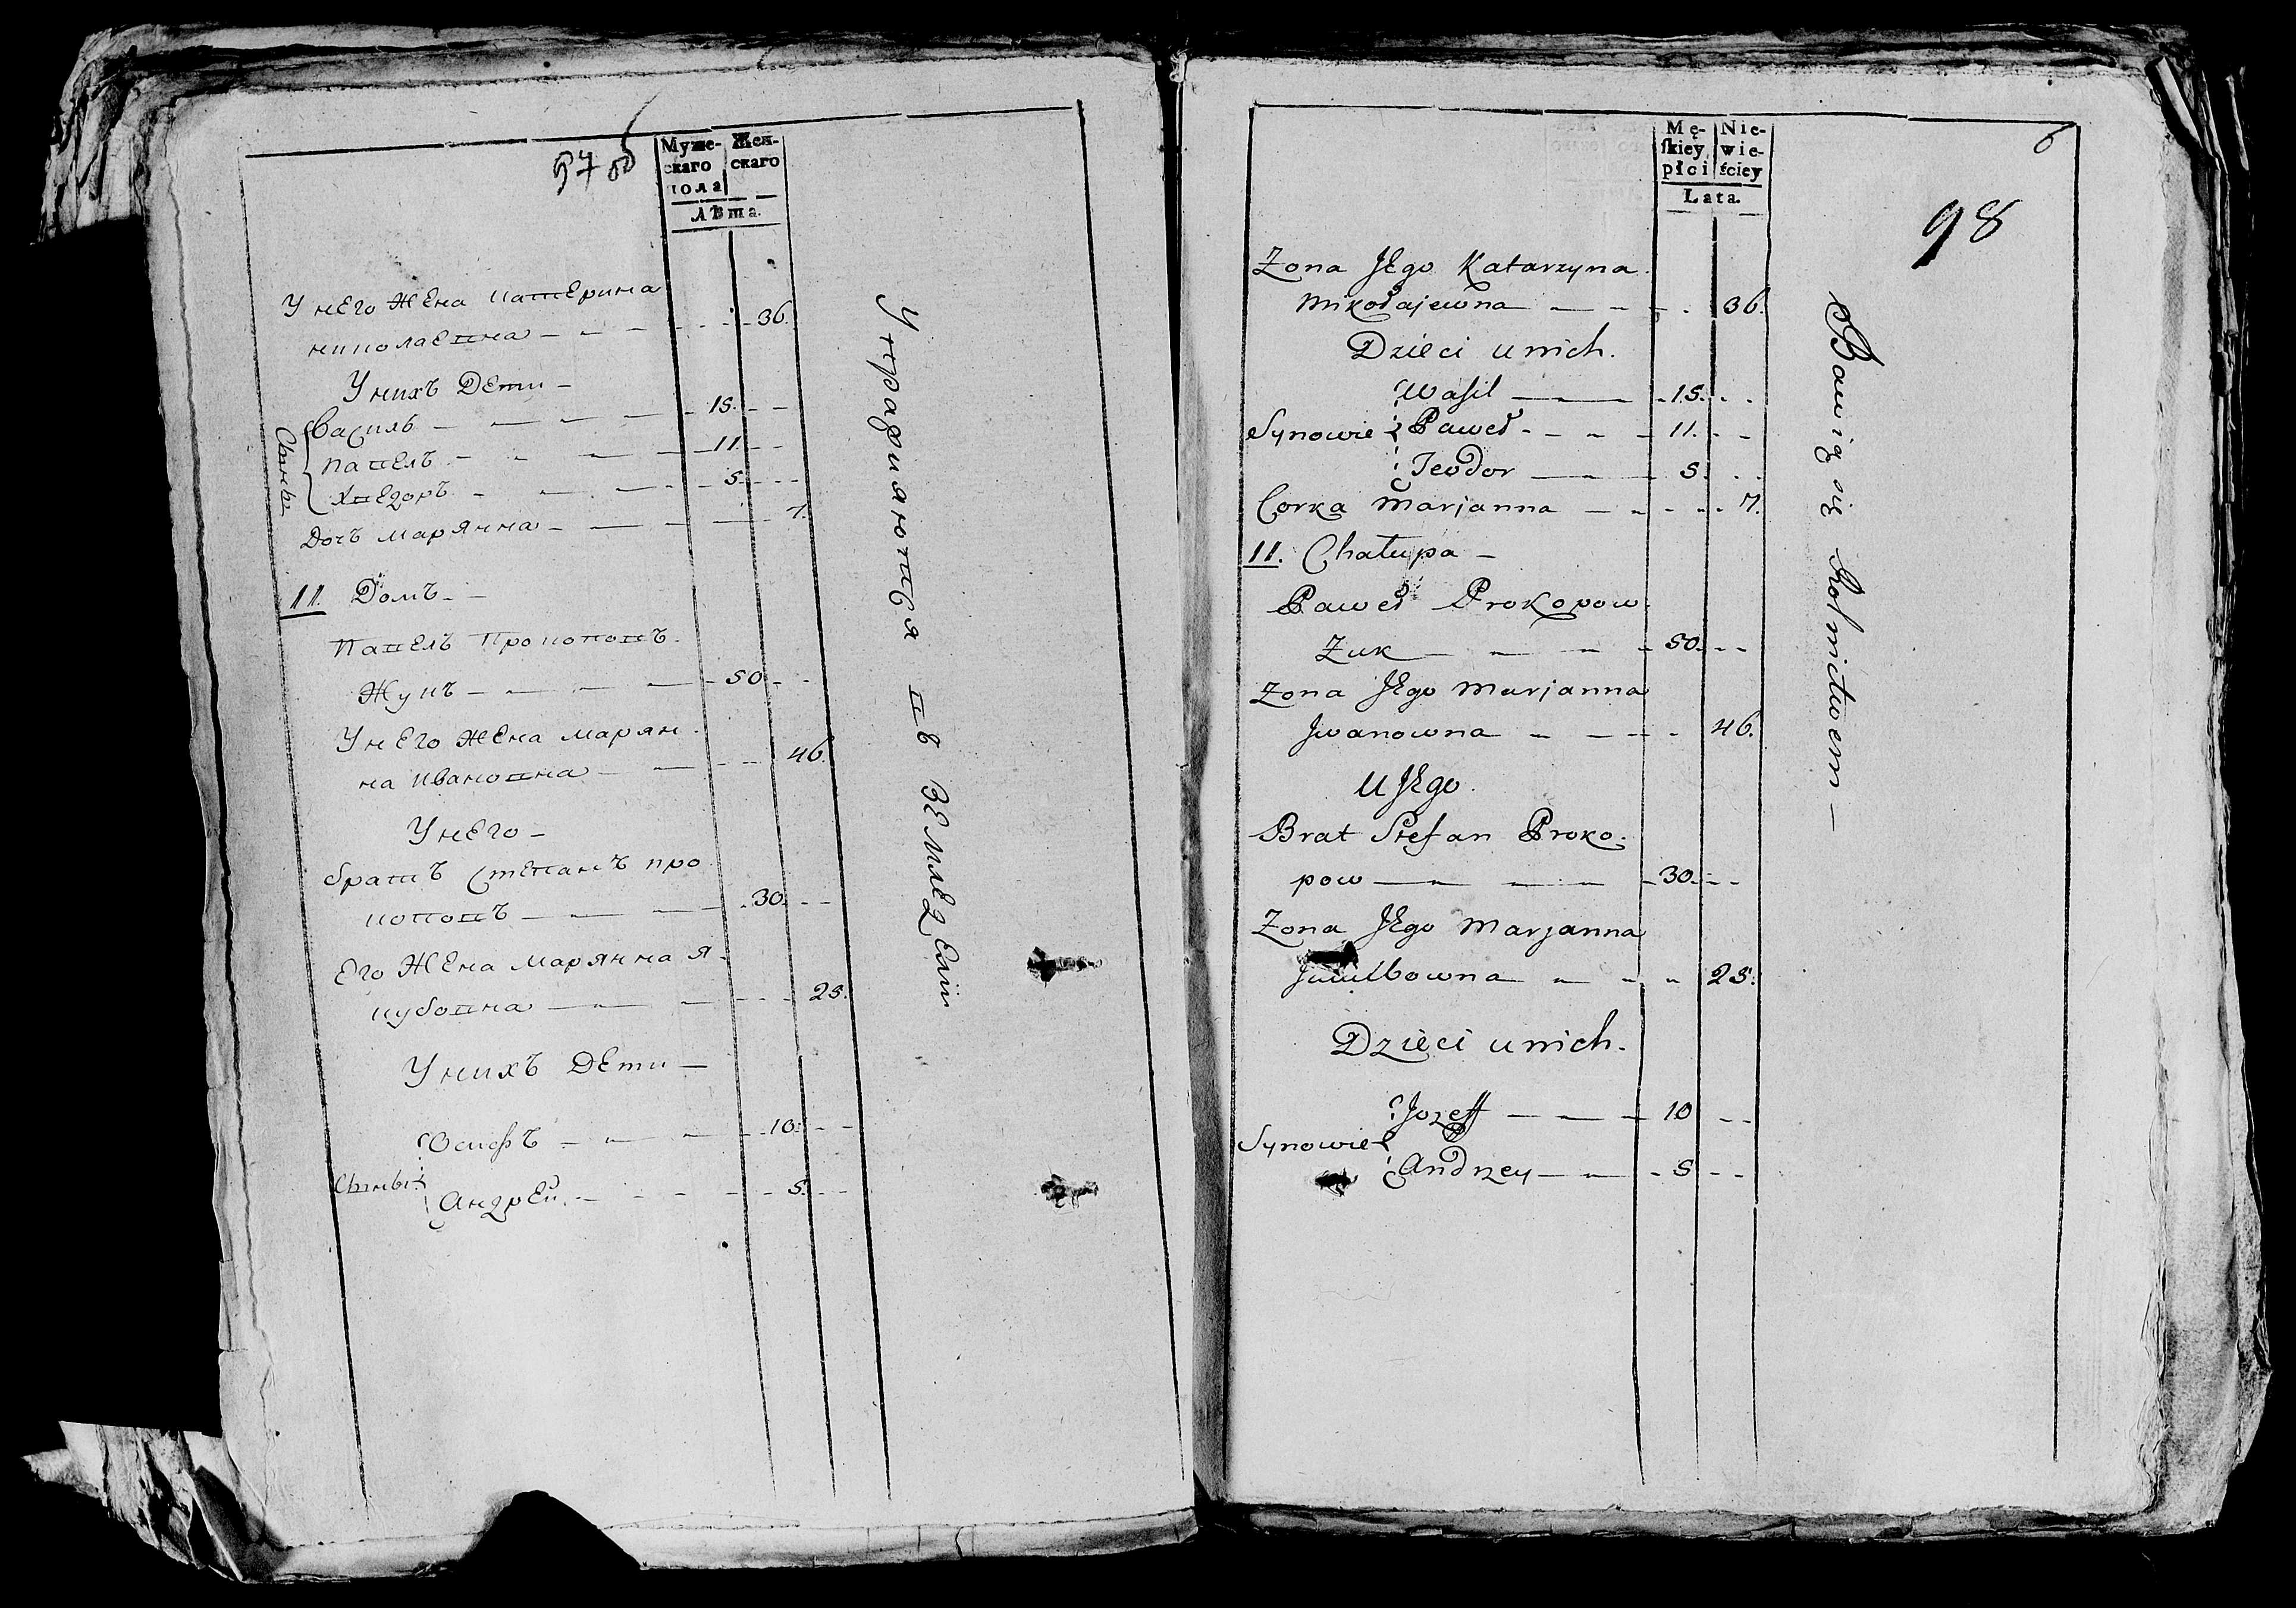 97 об
Муже-
скаго
пола
Жен-
скаго
Лѣта.
У него Жена Катерина
николаевна — 36.
У нихъ Дети —
Сынъ
Василь — 15.
Павелъ — 11.
Хведоръ — 5.
Дочъ Марянна — 7.
11. Домъ —
Павелъ Прокоповъ
Жукъ — 50
У него жена Марян-
на Ивановна — 46.
У него —
братъ Степанъ про
коповъ — 30.
Его Жена Марянна Я-
кубовна — 25.
У нихъ Дети —
Сыны
Осифъ — 10.
Андрей — 5.
Упражняются въ земледелии
6
98
Mę-
ſkiey
płci
Nie-
wie-
ściey
Lata.
Zona Jego Katarzyna
Mikołajewna — 36.
Dzieci u nich.
Synowie
Waſil — 15.
Paweł — 11.
Teodor — 5.
Corka Marjanna — 7.
11. Chałupa —
Paweł Prokopow
Zuk — 50.
Zona Jego Marjanna
Jwanowna — 46.
U Jego.
Brat Stefan Proko-
pow — 30.
Zona Jego Marjanna
25.
Dzieci u nich.
Synowie
Jozeff — 10
Andrzey — 5
Bawią się Rolnictwem —